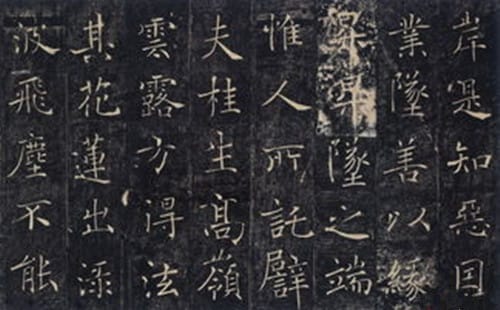 岸是知惡因
業墜善以緣
昇昇墜之端
惟人所託譬
夫桂生高嶺
雲露方得泫
其花蓮出淥
波飛塵不能